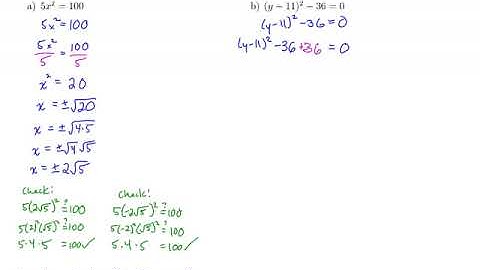 a) 5x² = 100
5x² = 100
5x²/5 = 100/5
x² = 20
x = ±√20
x = ±√4·5
x = ±√4√5
x = ±2√5
Check!
5(2√5)² ≟ 100
5(2)²(√5)² ≟ 100
5·4·5 = 100 ✓
Check!
5(-2√5)² ≟ 100
5(-2)²(√5)² ≟ 100
5·4·5 = 100 ✓
b) (y − 11)² − 36 = 0
(y-11)² -36 = 0
(y-11)² -36 +36 = 0